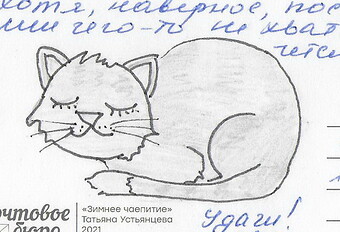 хотя, наверное, пос
чего-то не хват
ется
«Зимнее чаепитие»
очтовое
Татьяна Устьянцева
бюро
2021
Удачи!